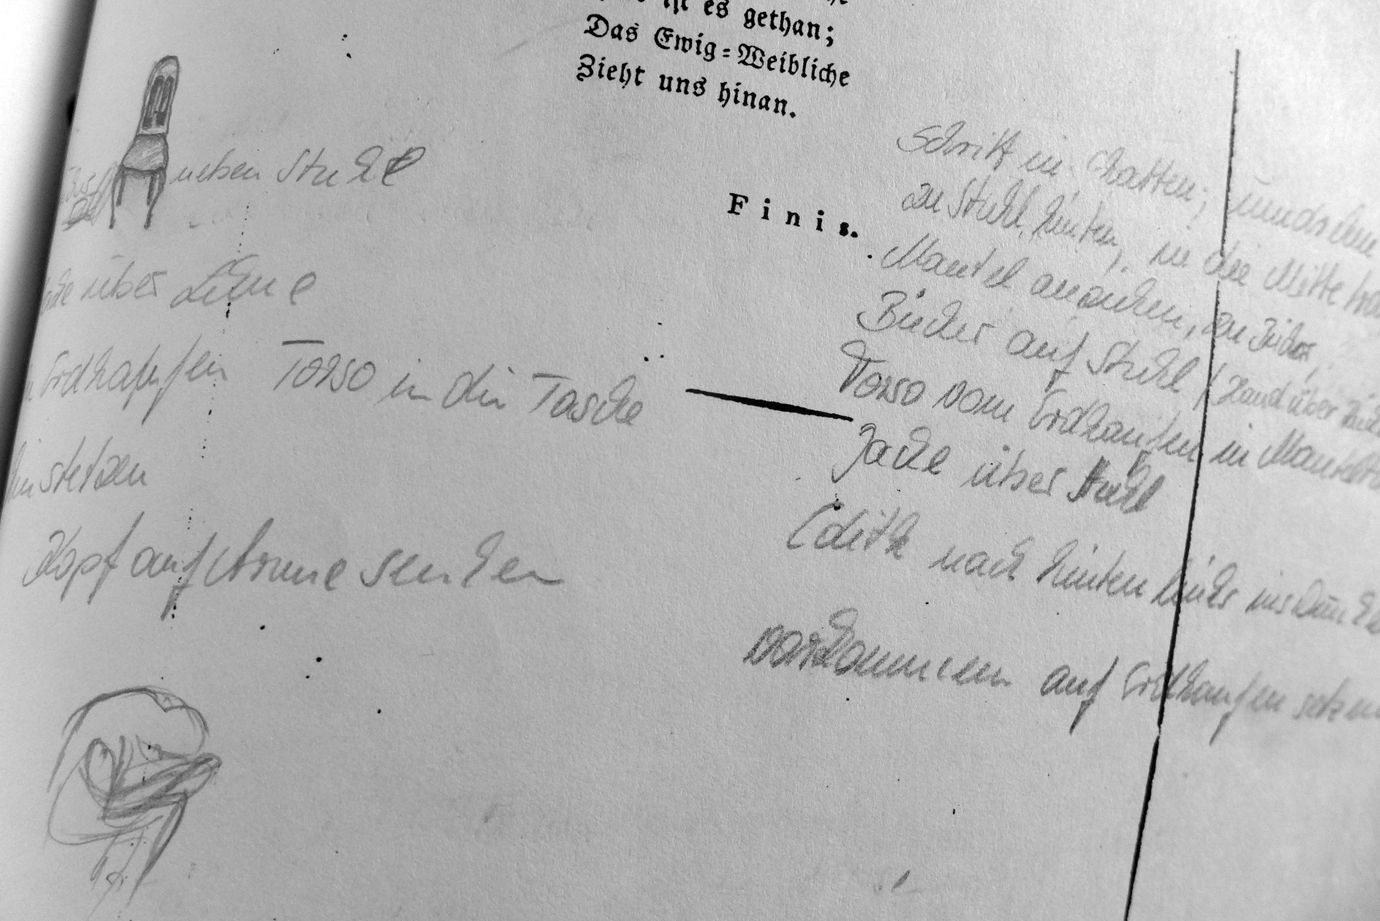 ist es gethan;
Das Ewig-Weibliche
Zieht uns hinan.
Finis.
neben Stuhl
über Lehne
Erdhaufen Torso in die Tasche
Kopf auf Arme senken
Schritt in Schatten;
zu Stuhl hinten, in die Mitte
Mantel anziehen, zu Bücher,
Bücher auf Stuhl / Hand über
Torso vom Erdhaufen in
Jacke über Stuhl
Edith nach hinten links ins
vorkommen auf Erdhaufen setzen